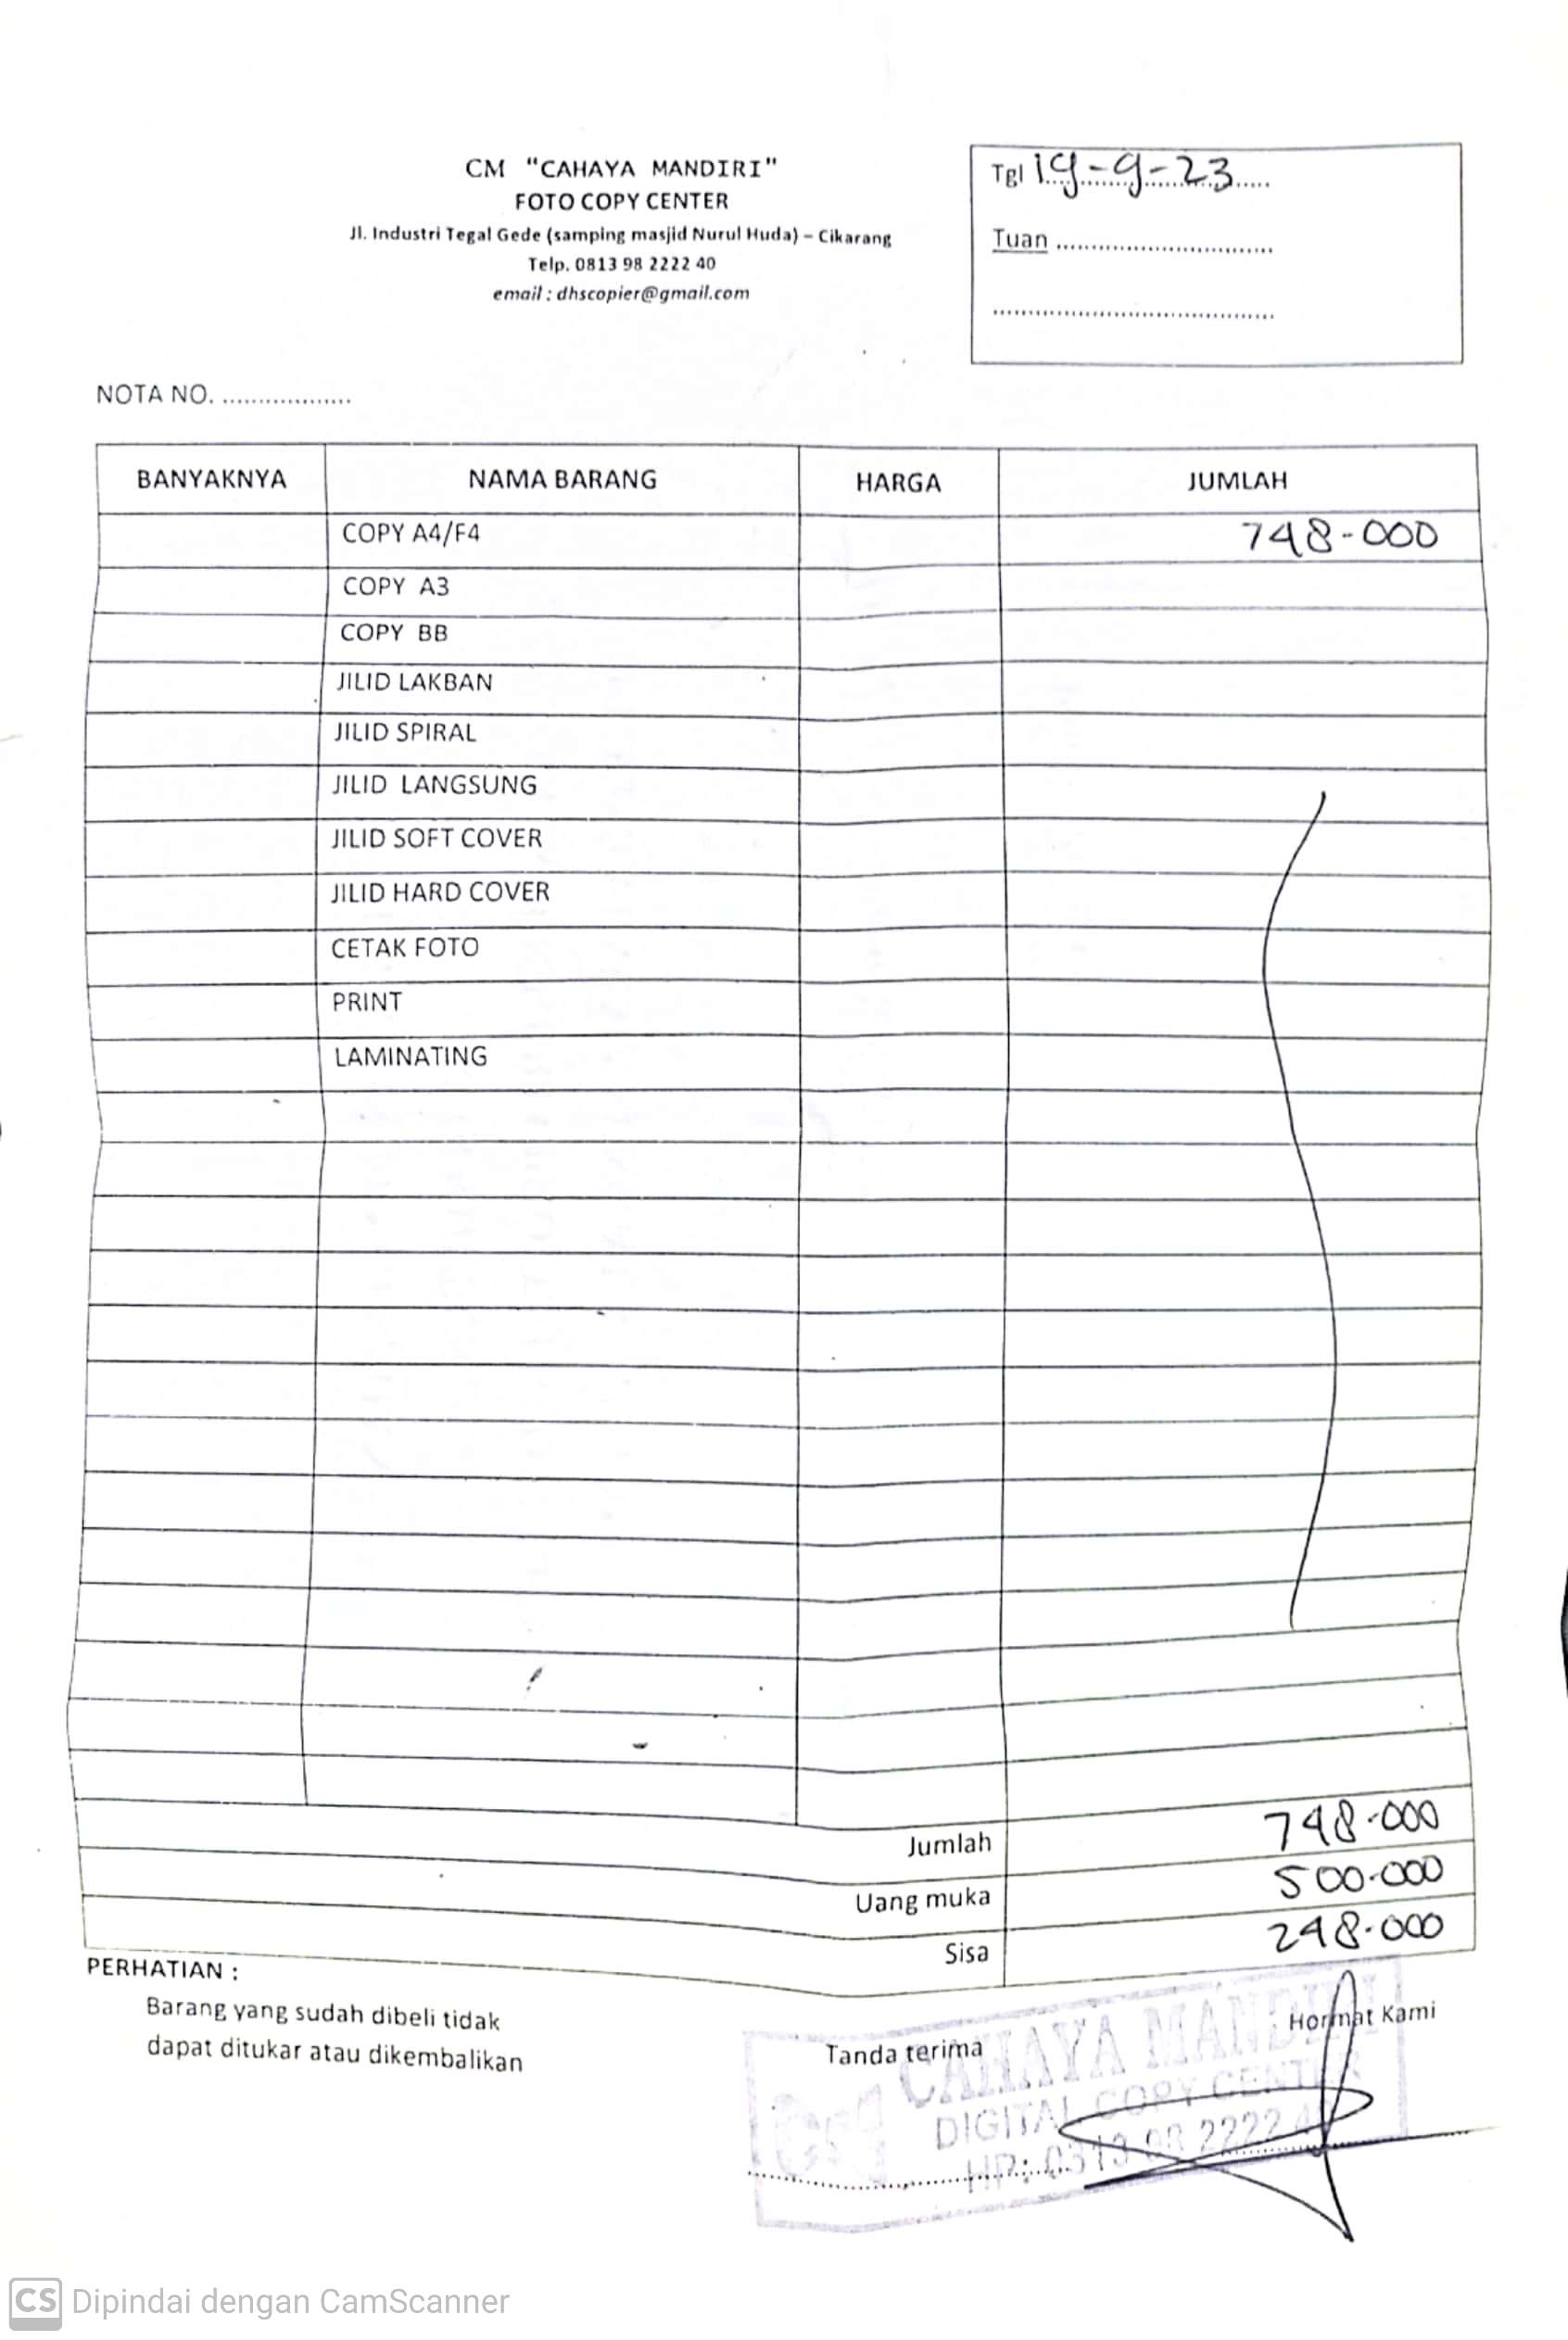 CM "CAHAYA MANDIRI"
FOTO COPY CENTER
Jl. Industri Tegal Gede (samping masjid Nurul Huda) – Cikarang
Telp. 0813 98 2222 40
email : dhscopier@gmail.com
Tgl 19-9-23
Tuan ..............................
.......................................
NOTA NO. ..................
BANYAKNYA NAMA BARANG HARGA JUMLAH
COPY A4/F4 748-000
COPY A3
COPY BB
JILID LAKBAN
JILID SPIRAL
JILID LANGSUNG
JILID SOFT COVER
JILID HARD COVER
CETAK FOTO
PRINT
LAMINATING
Jumlah 748.000
Uang muka 500.000
Sisa 248.000
PERHATIAN :
Barang yang sudah dibeli tidak
dapat ditukar atau dikembalikan
Tanda terima
Hormat Kami
CAHAYA MANDIRI
DIGITAL COPY CENTER
HP: 0813 98 2222 4
CS Dipindai dengan CamScanner